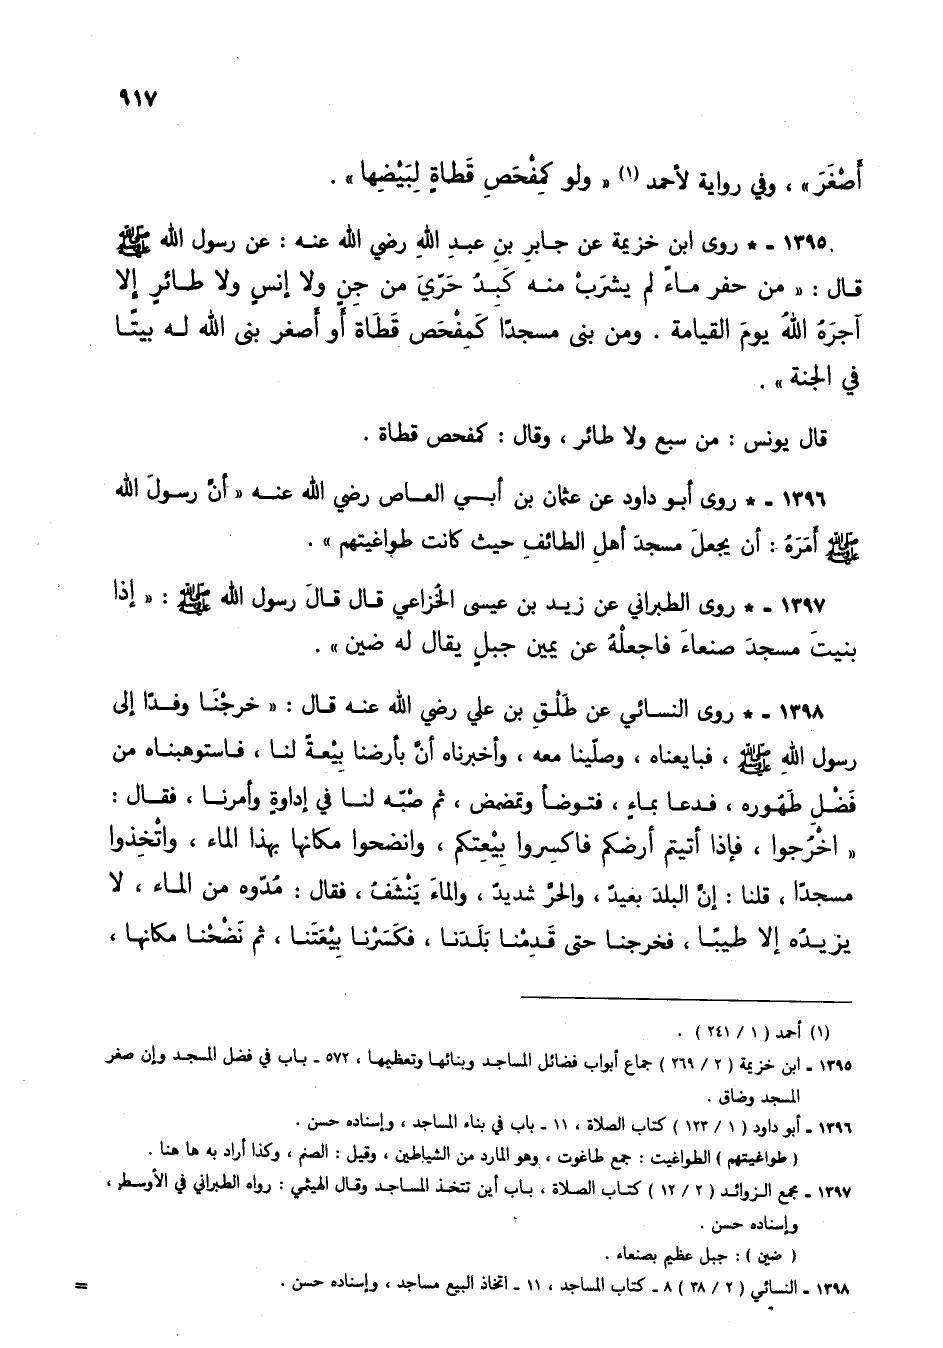 ٩١٧
أَصْغَرَ» ، وفي رواية لأحمد (١) « ولو كمِفْحَصِ قَطاةٍ لِبَيْضِها » .
١٣٩٥ - * روى ابن خزيمة عن جابرِ بنِ عبدِ اللهِ رضي الله عنه : عن رسول الله ﷺ
قال : « من حفر ماءً لم يشرَبْ منه كَبِدٌ حَرَّيَ من جِنٍ ولا إنسٍ ولا طائرٍ إلا
آجرَهُ اللهُ يومَ القيامة . ومن بنى مسجدًا كَمِفْحَص قَطَاة أو أصغر بنى الله له بيتًا
في الجنة » .
قال يونس : من سبع ولا طائر ، وقال : كمفحص قطاة .
١٣٩٦ - * روى أبو داود عن عثمان بن أبي العاص رضي الله عنه « أنَّ رسولَ الله
ﷺ أَمَرَهُ : أن يجعلَ مسجدَ أهلِ الطائفِ حيث كانت طواغيتهم » .
١٣٩٧ - * روى الطبراني عن زيد بن عيسى الخُزاعي قال قالَ رسول الله ﷺ : « إذا
بنيتَ مسجدَ صنعاءَ فاجعلْهُ عن يمين جبلٍ يقال له ضين » .
١٣٩٨ - * روى النسائي عن طَلْقِ بن علي رضي الله عنه قال : « خرجْنَا وفدًا إلى
رسول اللهِ ﷺ ، فبايعناه ، وصلّينا معه ، وأخبرناه أنَّ بأرضنا بِيْعةً لنا ، فاستوهبناه من
فَضْلِ طَهُوره ، فدعا بماءٍ ، فتوضأ وتمضمض ، ثم صبّه لنا في إداوةٍ وأمرنا ، فقال :
« اخْرُجوا ، فإذا أتيتم أرضكم فاكسِروا بِيْعتِكم ، وانضحوا مكانها بهذا الماء ، واتْخِذوا
مسجدًا ، قلنا : إنَّ البلدَ بعيدٌ ، والحرَّ شديدٌ ، والماءَ يَنْشَفُ ، فقال : مُدّوه من الماء ، لا
يزيدُه إلا طيبًا ، فخرجنا حتى قَدِمْنا بَلَدَنا ، فكَسَرْنا بِيْعَتَنا ، ثم نَضْحْنا مكانها ،
(١) أحمد ( ١ / ٢٤١ ) .
١٣٩٥ - ابن خزيمة ( ٢ / ٢٦٩ ) جماع أبواب فضائل المساجد وبنائها وتعظيمها ، ٥٧٢ - باب في فضل المسجد وإن صغر
المسجد وضاق .
١٣٩٦ - أبو داود ( ١ / ١٢٣ ) كتاب الصلاة ، ١١ - باب في بناء المساجد ، وإسناده حسن .
( طواغيتهم ) الطواغيت : جمع طاغوت ، وهو المارد من الشياطين ، وقيل : الصنم ، وكذا أراد به ها هنا .
١٣٩٧ - مجمع الزوائد ( ٢ / ١٢ ) كتاب الصلاة ، باب أين تتخذ المساجد وقال الهيثمي : رواه الطبراني في الأوسط ،
وإسناده حسن .
( ضين ) : جبل عظيم بصنعاء .
١٣٩٨ - النسائي ( ٢ / ٣٨ ) ٨ - كتاب المساجد ، ١١ - اتخاذ البيع مساجد ، وإسناده حسن .
=